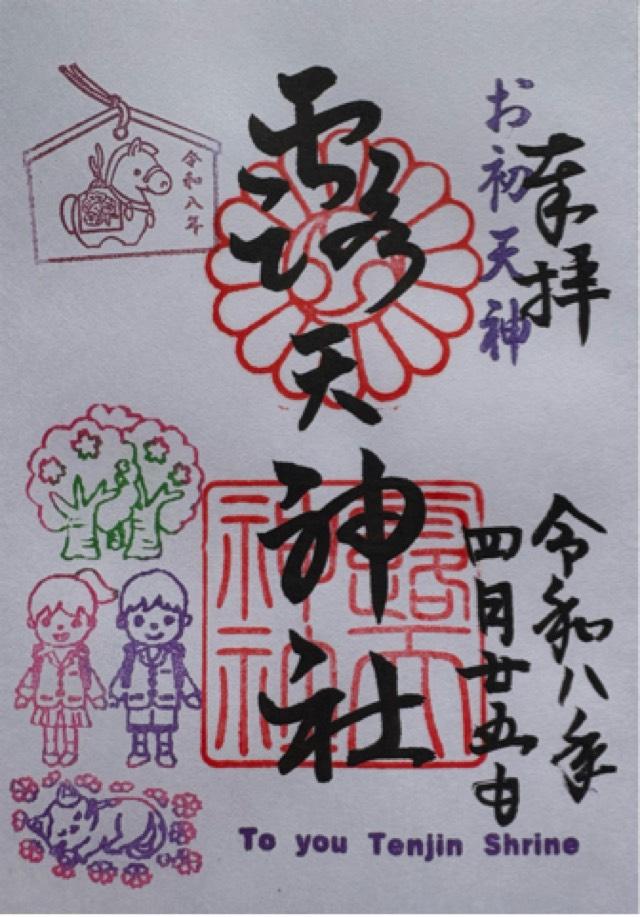 奉拝
お初天神
露天神社
令和八年
四月廿五日
令和八年
To you Tenjin Shrine